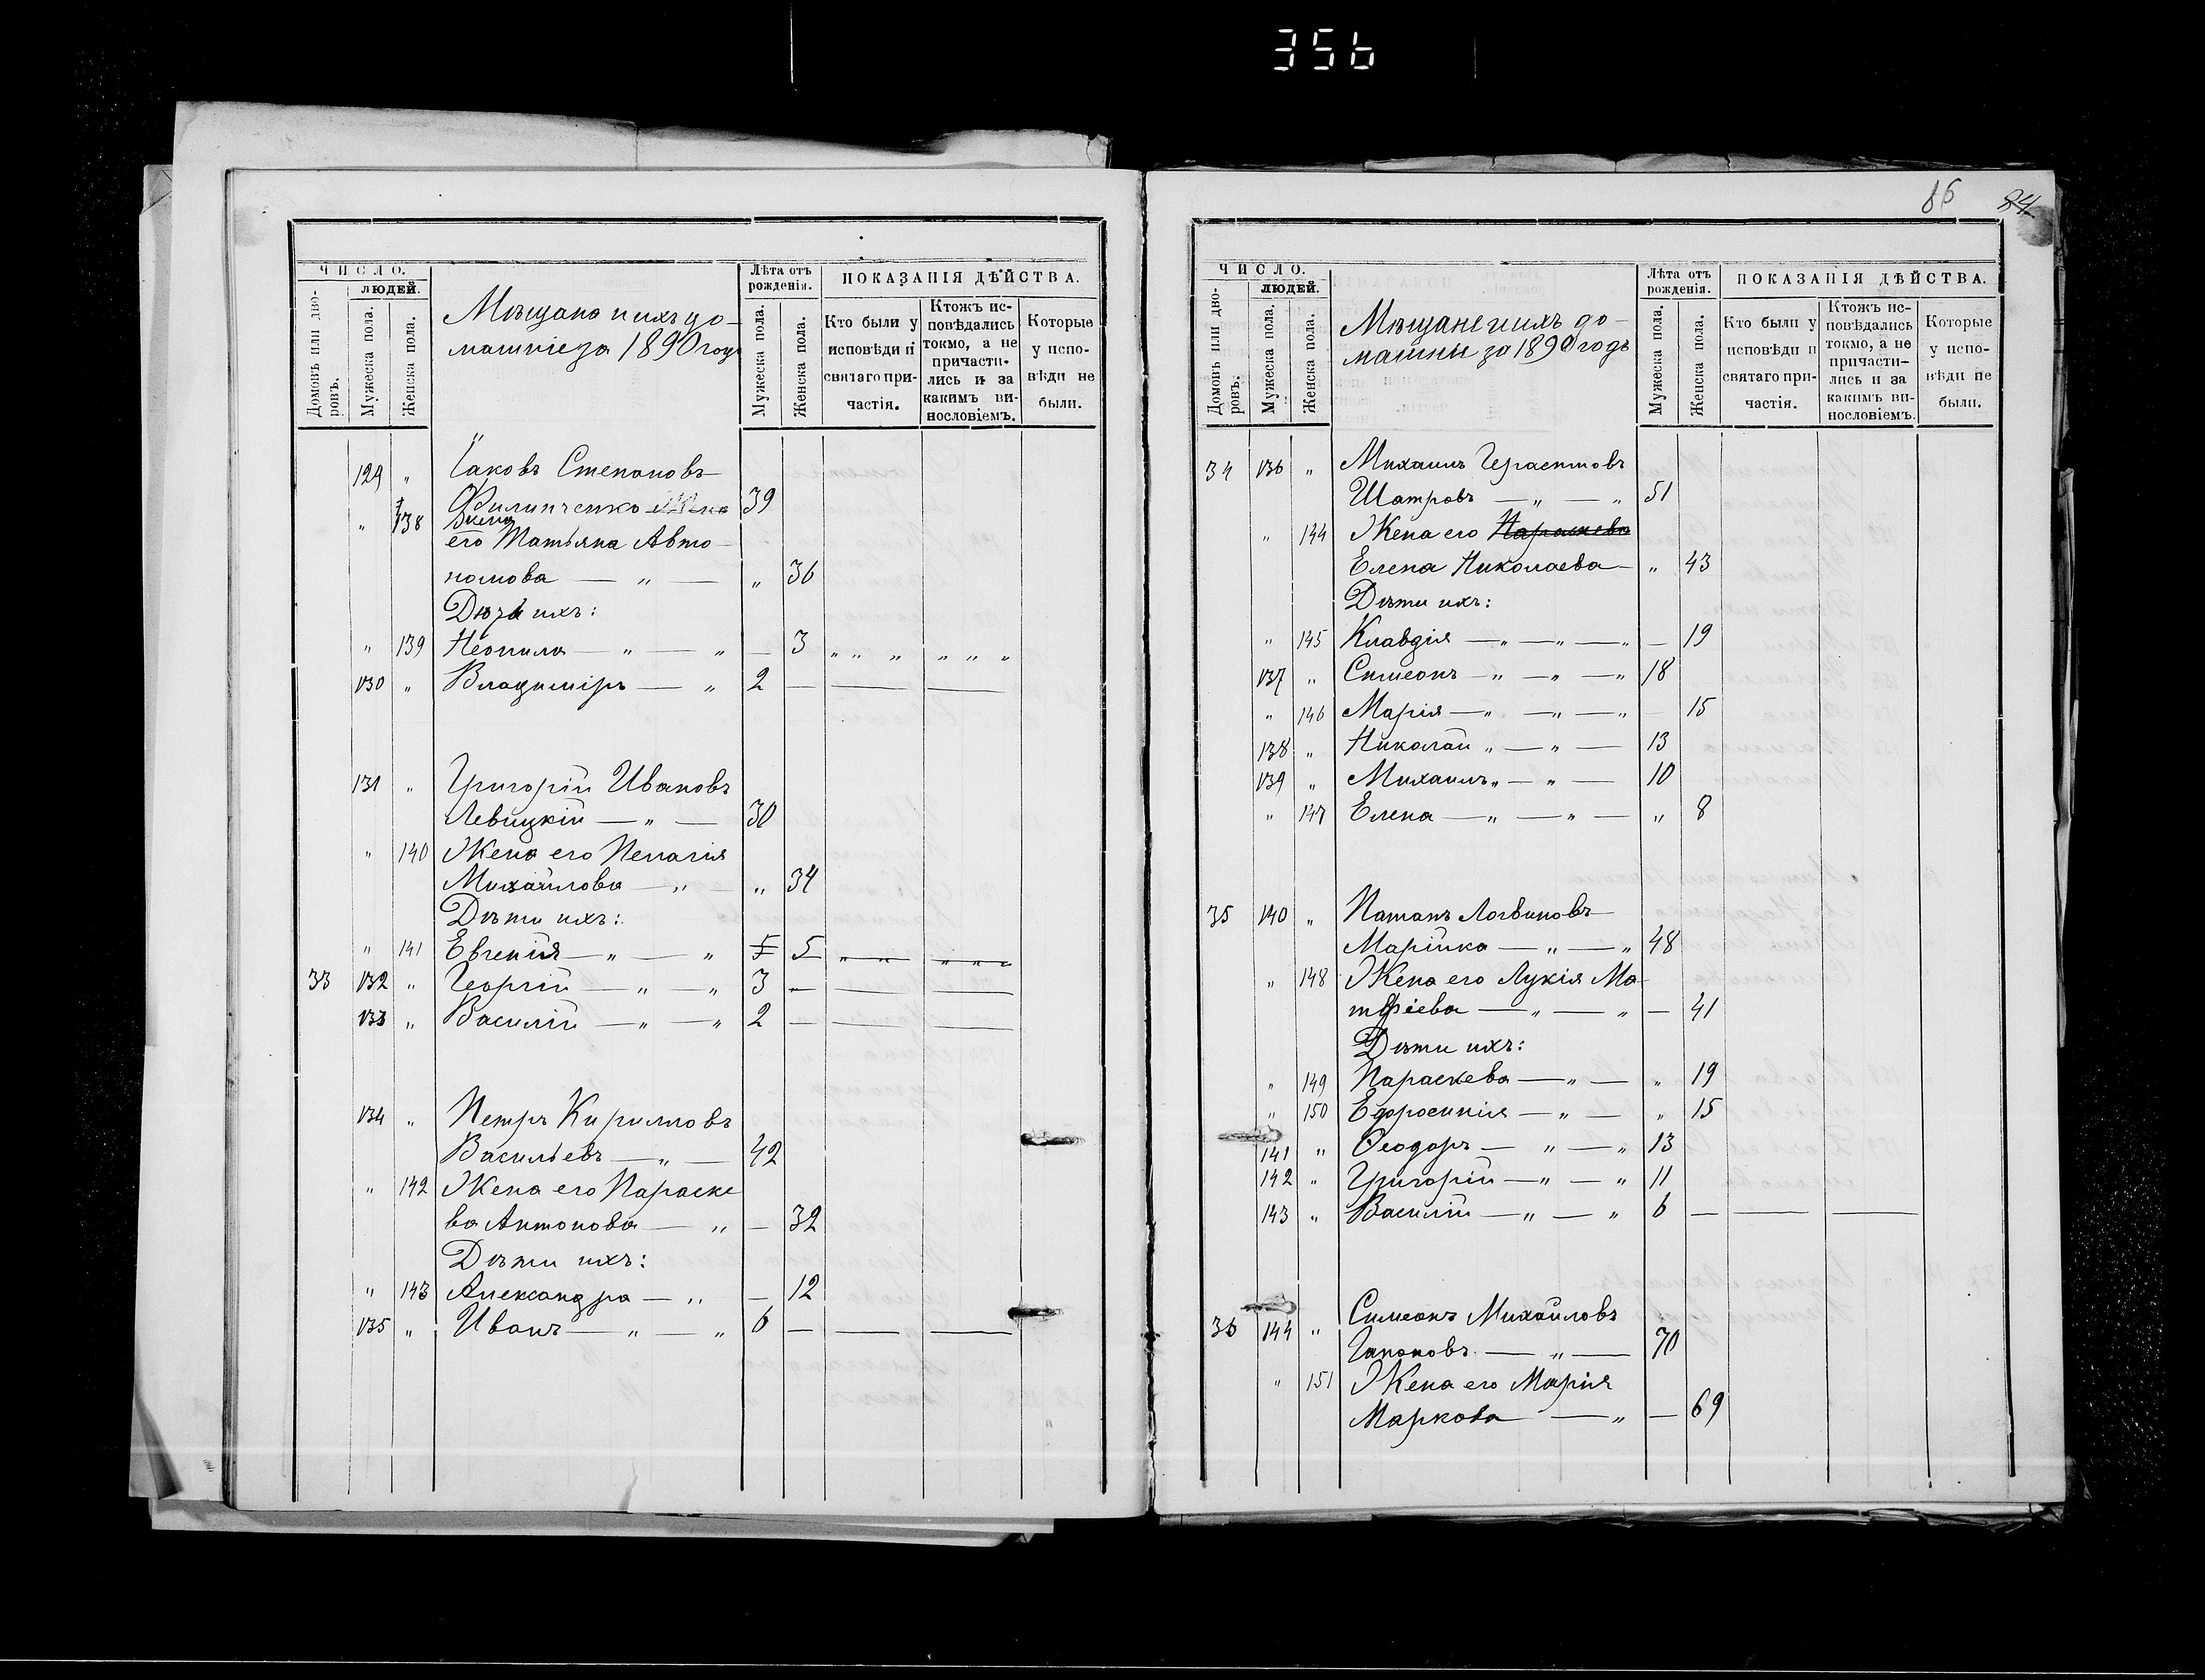 356
ЧИСЛО.
Домовъ или дво-
ровъ.
ЛЮДЕЙ.
Мужеска пола.
Женска пола.
Мѣщане и ихъ до-
машніе за 1890 годъ
Лѣта отъ
рожденія.
Мужеска пола.
Женска пола.
ПОКАЗАНІЯ ДѢЙСТВА.
Кто были у
исповѣди и
святаго при-
частія.
Ктожъ ис-
повѣдались
токмо, а не
причасти-
лись и за
какимъ ви-
нословіемъ.
Которые
у испо-
вѣди не
были.
129 " Іаковъ Степановъ
Филипченко 39
" 138 Жена
его Татьяна Авто-
номова — " — " 36
Дѣти ихъ:
" 139 Неонила — " — " — 3 " " " " " "
130 " Владиміръ — " 2 — — —
131 " Григорій Ивановъ
Левицкій — " — 30
" 140 Жена его Пелагія
Михайлова — " — " 34
Дѣти ихъ:
" 141 Евгенія — " — " 5 5 " " " " "
33 132 " Георгій — " — " 3 — — —
133 " Василій — " — " 2 — — —
134 " Петръ Кирилловъ
Васильевъ — " — 42
" 142 Жена его Параске
ва Антонова — " — 32
Дѣти ихъ:
" 143 Александра — " — 12
135 " Иванъ — " — " 6 — — —
85 84
ЧИСЛО.
Домовъ или дво-
ровъ.
ЛЮДЕЙ.
Мужеска пола.
Женска пола.
Мѣщане и ихъ до-
машніе за 1890 годъ
Лѣта отъ
рожденія.
Мужеска пола.
Женска пола.
ПОКАЗАНІЯ ДѢЙСТВА.
Кто были у
исповѣди и
святаго при-
частія.
Ктожъ ис-
повѣдались
токмо, а не
причасти-
лись и за
какимъ ви-
нословіемъ.
Которые
у испо-
вѣди не
были.
34 136 " Михаилъ Герасимовъ
Шатровъ — " — " 51
" 144 Жена его Параскева
Елена Николаева — " 43
Дѣти ихъ:
" 145 Клавдія — " — " — " — 19
137 " Симеонъ — " — " — " 18
" 146 Марія — " — " — " — 15
138 " Николай " — " — 13
139 " Михаилъ " — " — 10
" 147 Елена — " — " — " 8
35 140 " Потапъ Логвиновъ
Марійко — " — " 48
" 148 Жена его Лукія Ма-
тфіева — " — " — 41
Дѣти ихъ:
" 149 Параскева — " — " 19
" 150 Ефросинія — " — " 15
141 " Ѳеодоръ — " — " 13
142 " Григорій — " — " 11
143 " Василій — " — " 6 — — —
36 144 " Симеонъ Михайловъ
Гапоновъ — " — 70
" 151 Жена его Марія
Маркова — " — 69